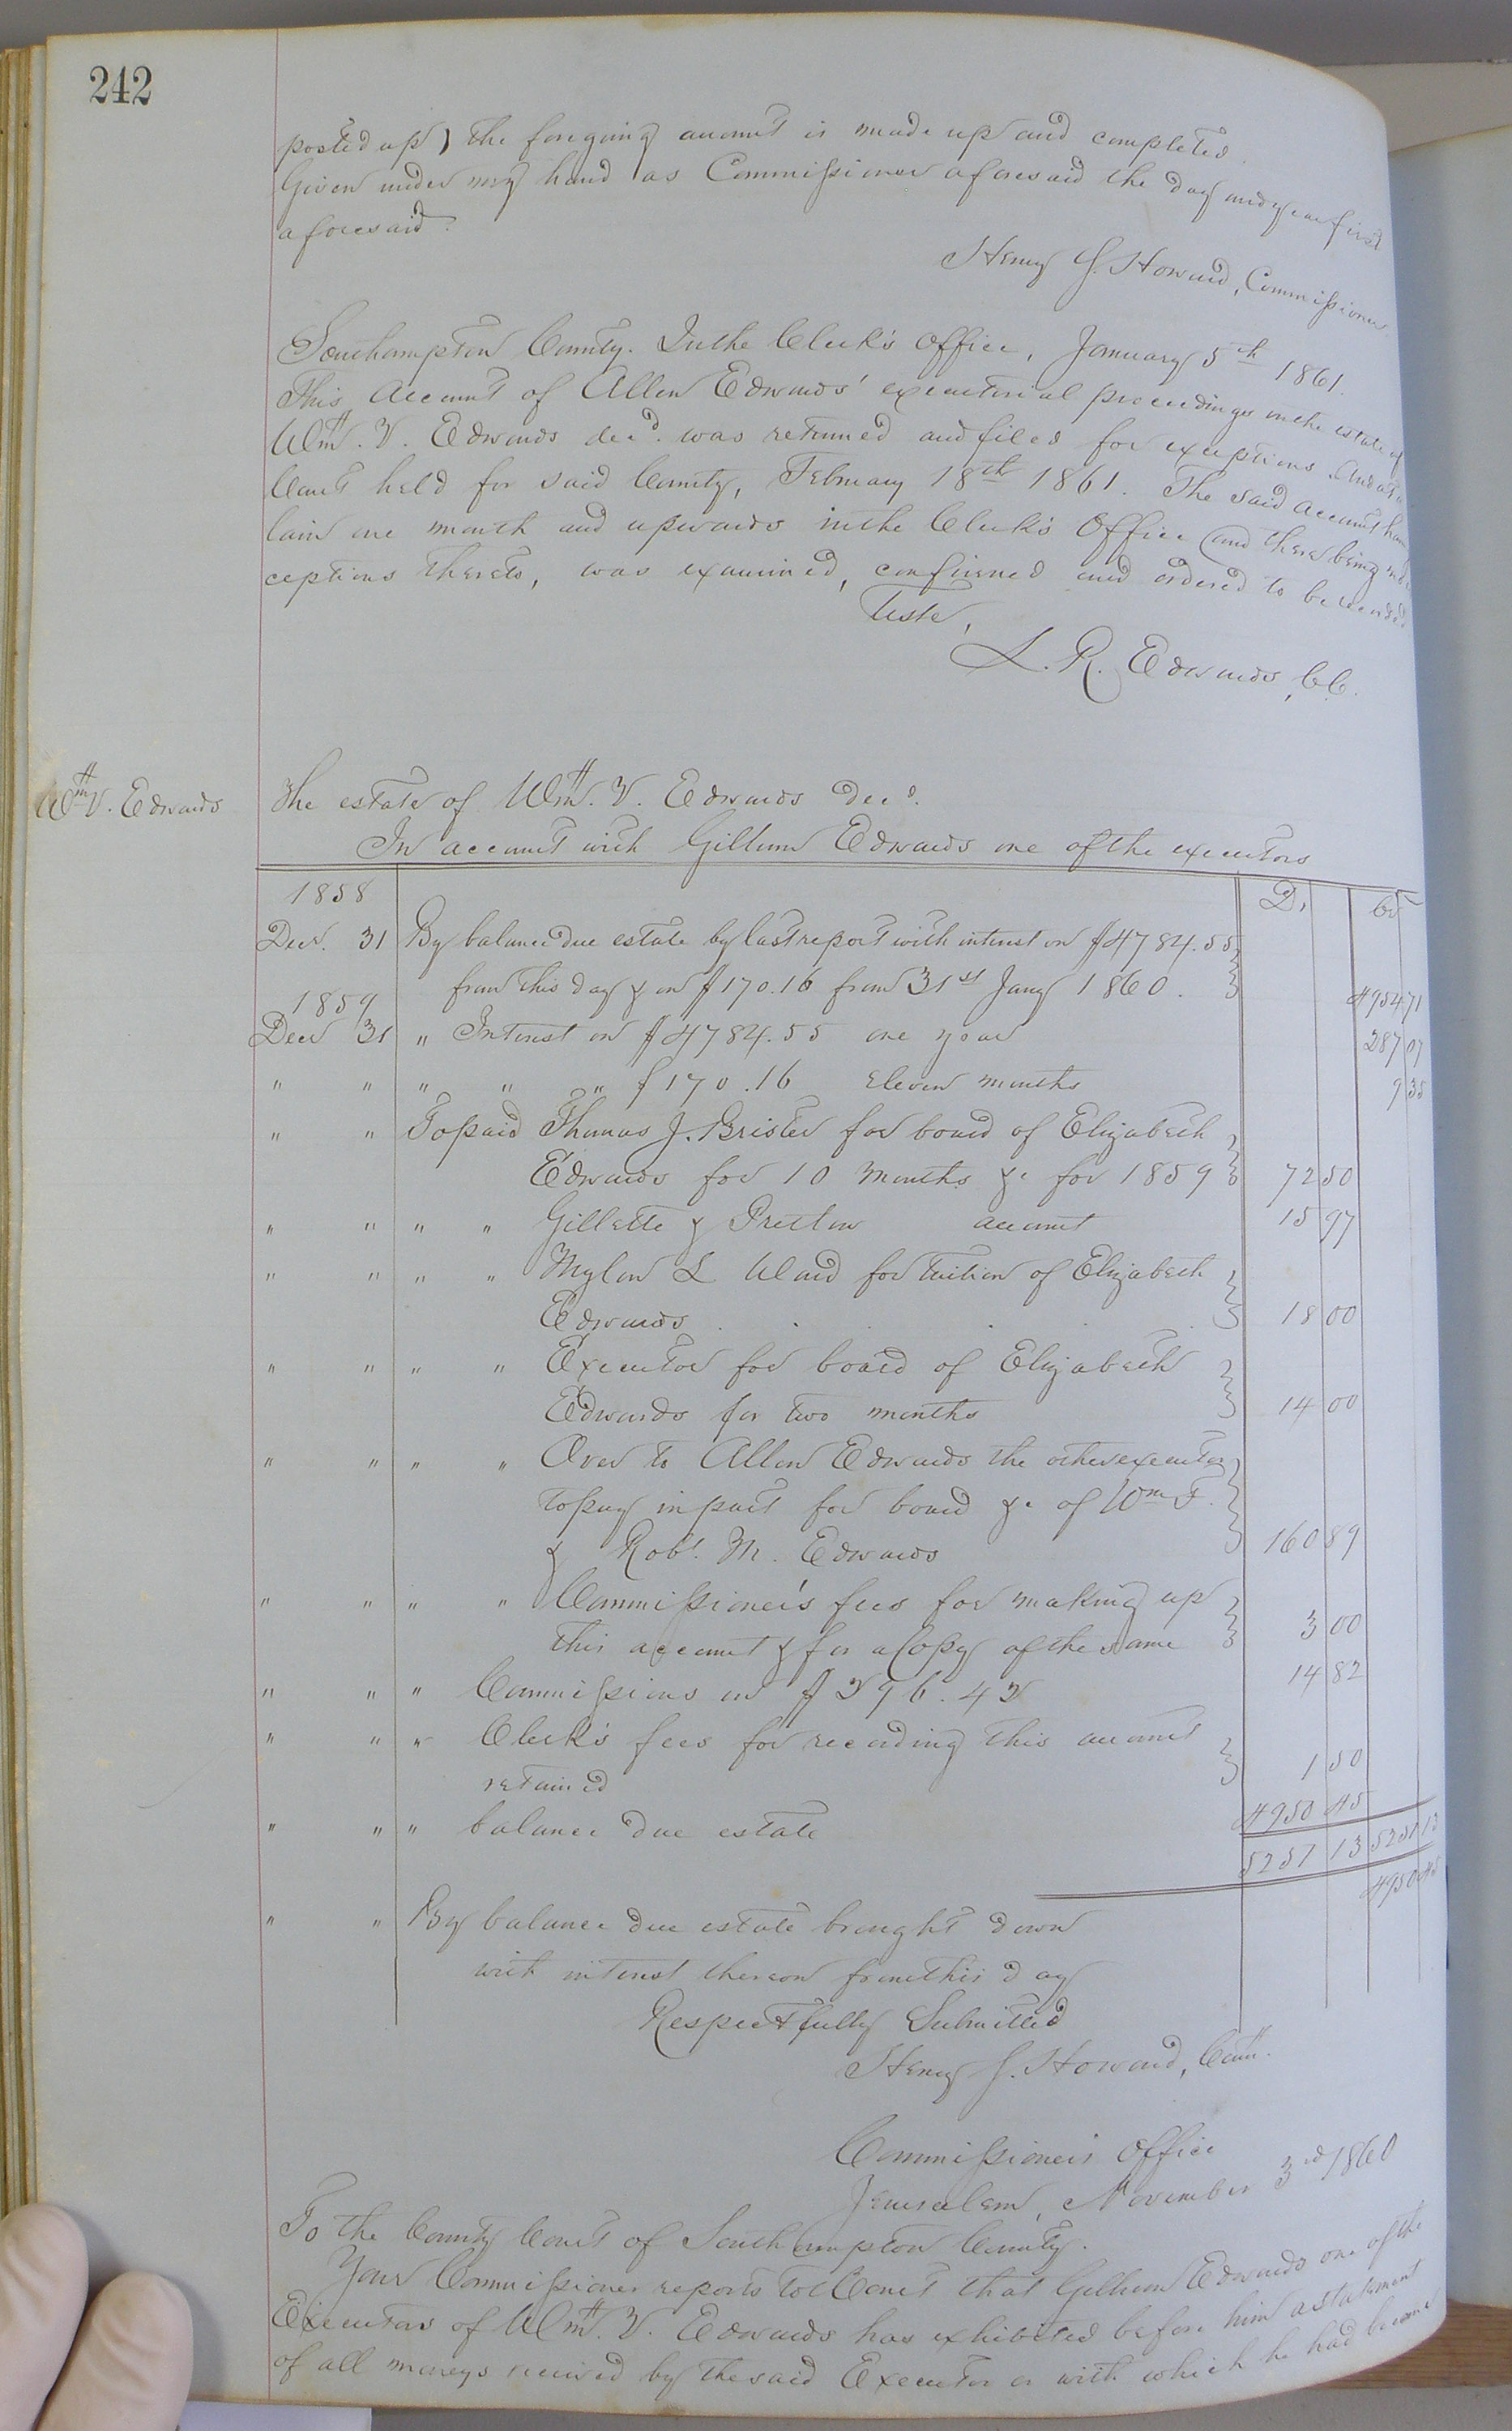 242
posted up) the foregoing account is made up and completed.
Given under my hand as Commissioner aforesaid the day and year first
aforesaid.
Henry J. Howard, Commissioner
Southampton County. In the Clerk's Office, January 5th 1861.
This Account of Allen Edwards' executorial proceedings on the estate of
Wm. V. Edwards decd. was returned and filed for exceptions. And at a
Court held for said County, February 18th 1861. The said account having
lain one month and upwards in the Clerk's Office (and there being no ex
ceptions thereto, was examined, confirmed and ordered to be recorded
Teste,
L. R. Edwards, CC.
Wm V. Edwards
The estate of Wm. V. Edwards Decd.
In account with Gillium Edwards one of the executors
1858 Dr Cr
Decr. 31 By balance due estate by last report with interest on $4784.55
from this day & on $170.16 from 31st Jany 1860. 4954 71
1859
Decr 31 " Interest on $4784.55 one year 287 07
" " " " " $170.16 eleven months 9 35
" " To paid Thomas J. Brister for board of Elizabeth
Edwards for 10 months &c for 1859 72 50
" " " " Gillette & Pretlow account 15 97
" " " " Mylow L Ward for tuition of Elizabeth
Edwards . . . . 18 00
" " " " Executor for board of Elizabeth
Edwards for two months 14 00
" " " " Over to Allen Edwards the other executor
to pay in part for board &c of Wm F.
& Robt. M. Edwards 160 89
" " " " Commissioner's fees for making up
this account & for a Copy of the same 3 00
" " " Commissions on $296.42 14 82
" " " Clerk's fees for recording this account
retained 1 50
" " " balance due estate 4950 45
5251 13 5251 13
" " By balance due estate brought down 4950 45
with interest thereon from this day
Respectfully Submitted
Henry J. Howard, Comr.
Commissioner's Office
Jerusalem, November 3rd 1860
To the County Court of Southampton County.
Your Commissioner reports to Court that Gillium Edwards one of the
Executors of Wm. V. Edwards has exhibited before him a statement
of all moneys received by the said Executor or with which he had become